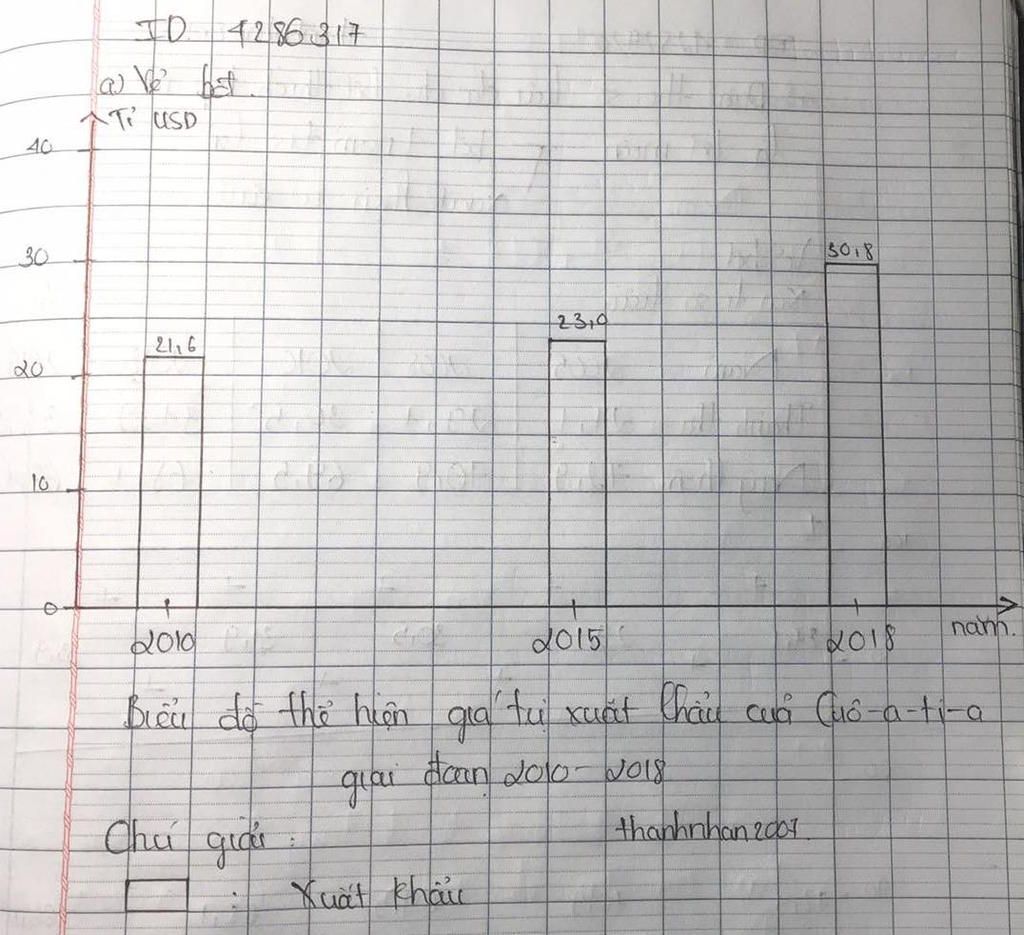 ID 4286317
a) Vẽ bđ.
Tỉ USD
40
30
20
10
0
21,6
23,0
30,8
2010 2015 2018 năm.
Biểu đồ thể hiện giá trị xuất khẩu của Crô-a-ti-a
giai đoạn 2010 - 2018
Chú giải :
thanhnhan2007.
: Xuất khẩu